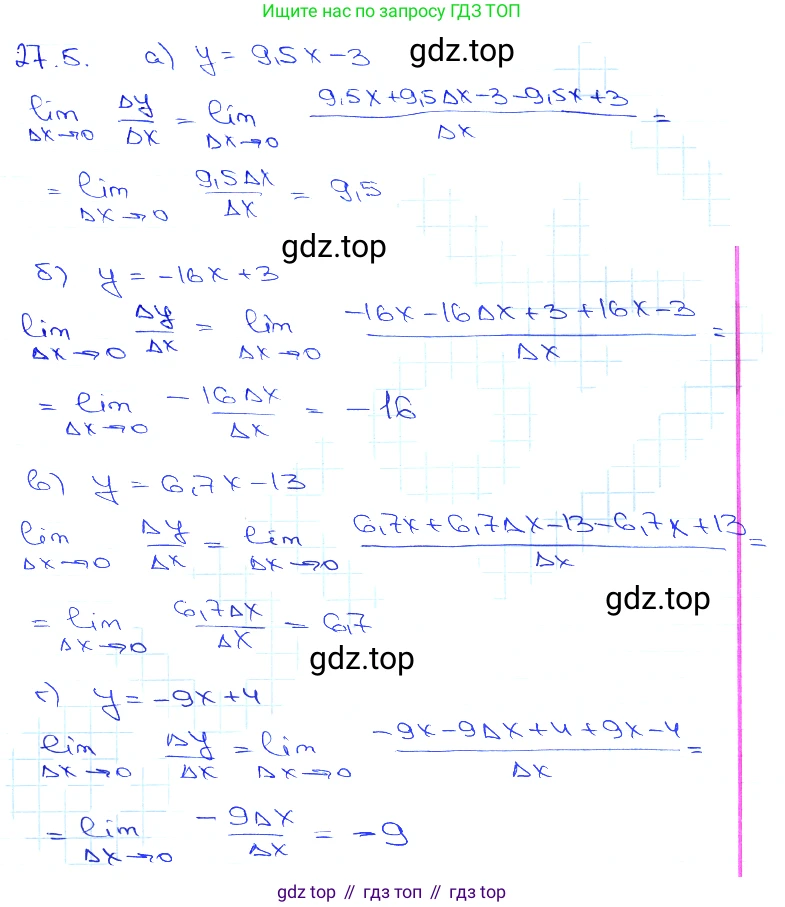 Ищите нас по запросу ГДЗ ТОП
27.5. а) y = 9,5x - 3 gdz.top
lim Δx→0 Δy/Δx = lim Δx→0 (9,5x + 9,5Δx - 3 - 9,5x + 3)/Δx =
= lim Δx→0 9,5Δx/Δx = 9,5
gdz.top
б) y = -16x + 3
lim Δx→0 Δy/Δx = lim Δx→0 (-16x - 16Δx + 3 + 16x - 3)/Δx =
= lim Δx→0 -16Δx/Δx = -16
в) y = 6,7x - 13
lim Δx→0 Δy/Δx = lim Δx→0 (6,7x + 6,7Δx - 13 - 6,7x + 13)/Δx =
gdz.top
= lim Δx→0 6,7Δx/Δx = 6,7
gdz.top
г) y = -9x + 4
lim Δx→0 Δy/Δx = lim Δx→0 (-9x - 9Δx + 4 + 9x - 4)/Δx =
= lim Δx→0 -9Δx/Δx = -9
gdz top // гдз топ // gdz top